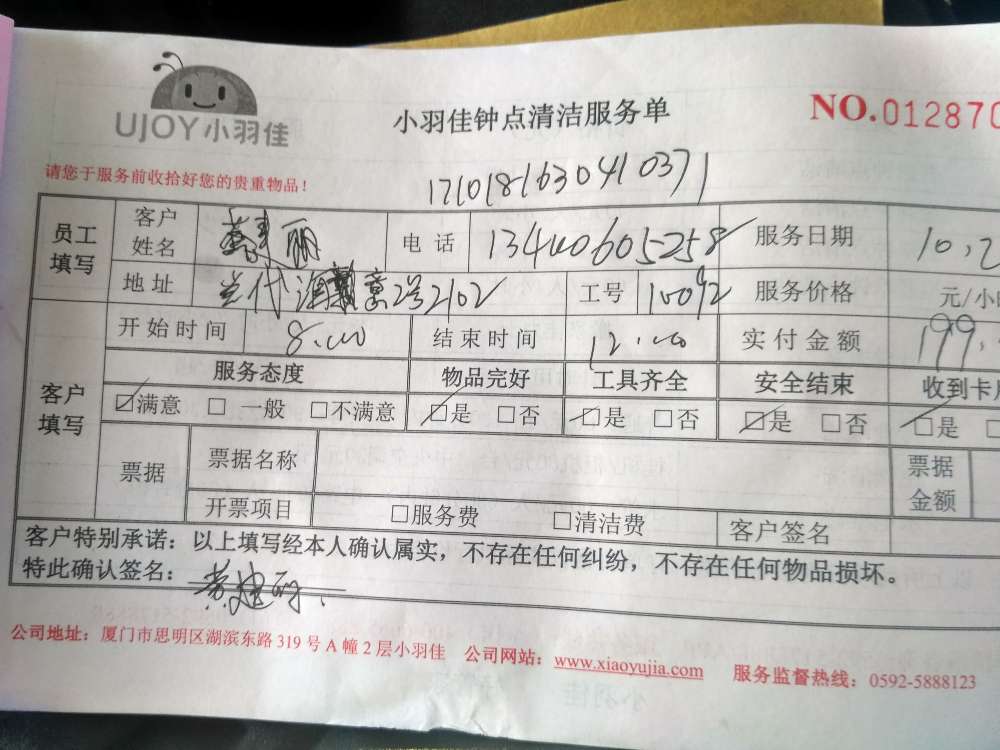 UJOY小羽佳
小羽佳钟点清洁服务单
NO.012870
请您于服务前收拾好您的贵重物品！
1710181630410371
员工填写 客户姓名 丽 电话 13440605258 服务日期 10.2
地址 当代 2号2102 工号 10092 服务价格 元/小
客户填写 开始时间 8.00 结束时间 12.00 实付金额 199.
服务态度 物品完好 工具齐全 安全结束 收到卡
☑满意 □一般 □不满意 ☑是 □否 ☑是 □否 ☑是 □否 ☑是 □
票据 票据名称 票据金额
开票项目 □服务费 □清洁费 客户签名
客户特别承诺：以上填写经本人确认属实，不存在任何纠纷，不存在任何物品损坏。
特此确认签名：
公司地址：厦门市思明区湖滨东路 319 号 A 幢 2 层小羽佳 公司网站：www.xiaoyujia.com 服务监督热线：0592-5888123